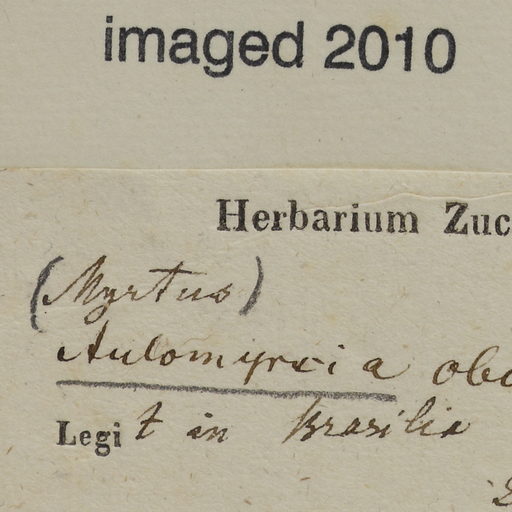 imaged 2010
Herbarium Zuc
(Myrtus)
Aulomyrcia obo
Legit in Brasilia